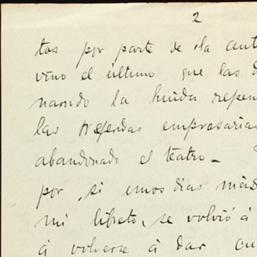 2
tos por parte de la aut
vino el último que las d
nando la huida repen
las referidas empresarias
abandonado el teatro_
por, si unos días más
mi libreto, se volvió á
á volverse á dar cu